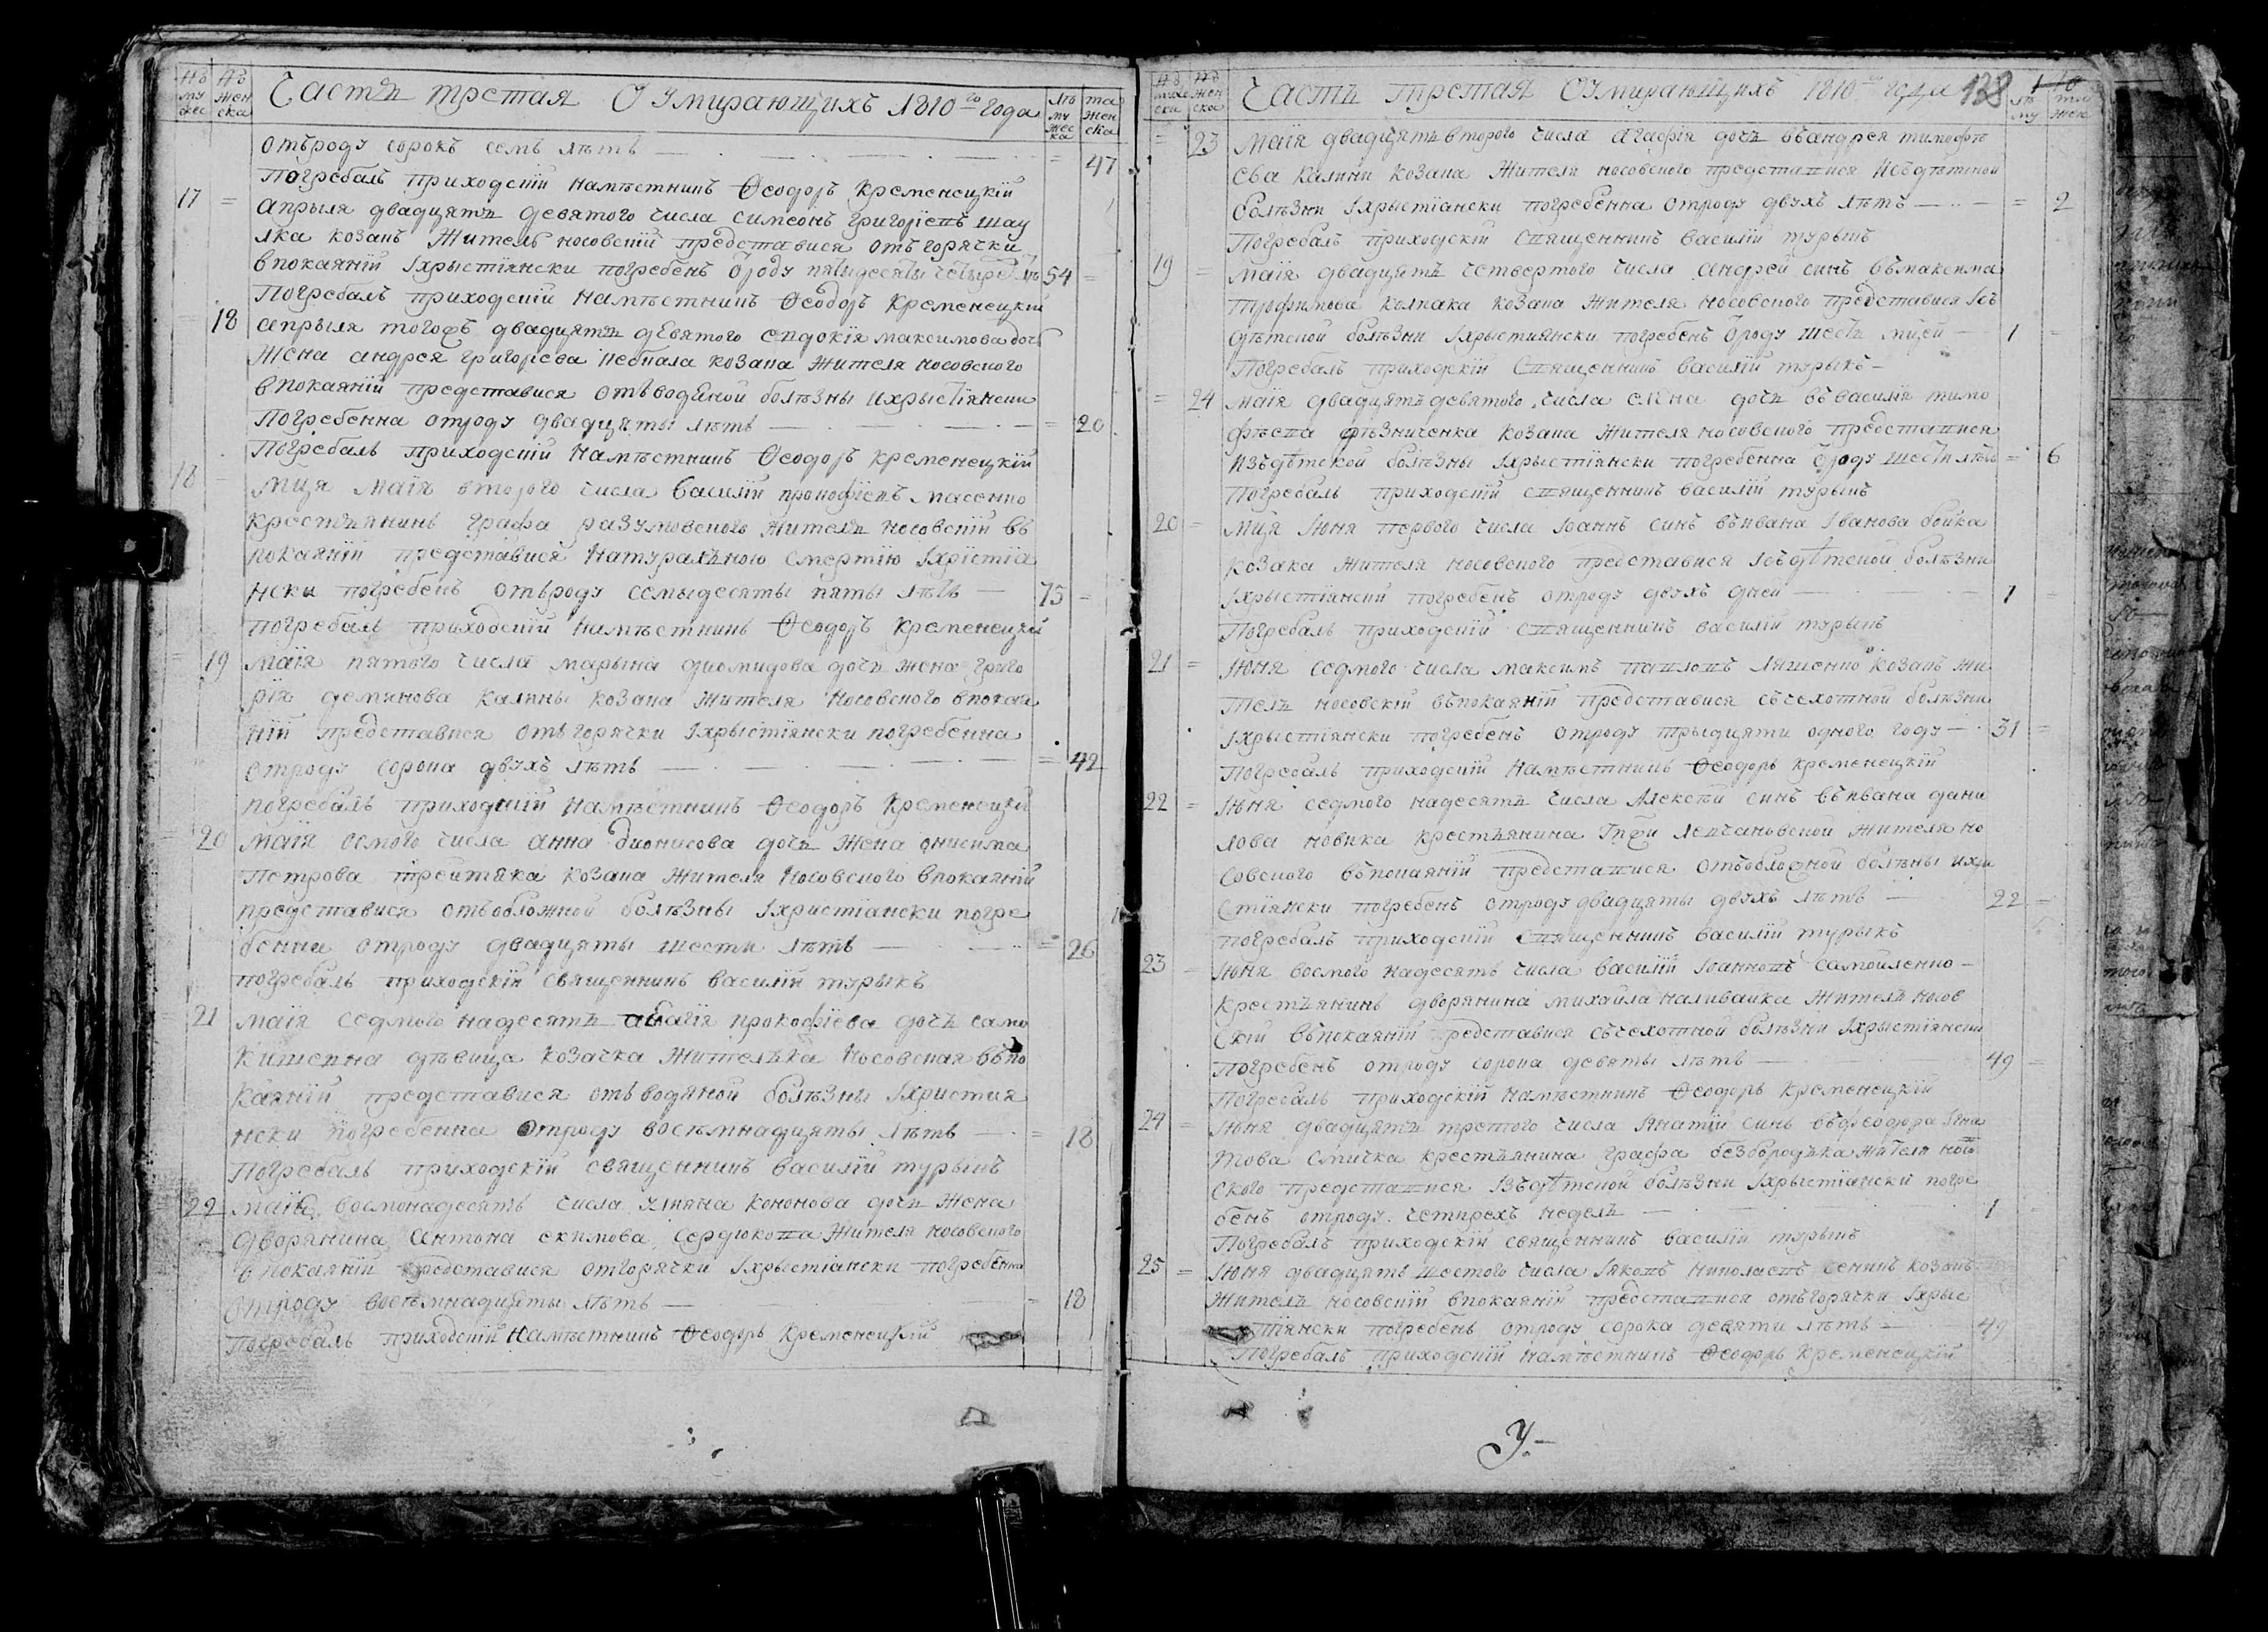 № му жес
№ жен ска
Часть третая О Умирающихъ 1810го года
лѣ му жес ка
та жен ска
отъроду сорокъ семь лѣтъ = 47
Погребалъ приходскій намѣстникъ Ѳеодоръ Кременецкій
17 = апрыля двадцять девятого числа симеонъ григоріевъ шау
лка козакъ житель носовскій представися отъ горячки
впокаяніи Іхрыстіянски погребенъ ѿроду пятидесяты четырех лѣ 54 =
Погребалъ приходскій намѣстникъ Ѳеодоръ Кременецкій
= 18 апрыля тогожъ двадцять девятого евдокія максимова дочь
жена андрея григоріева козака жителя носовского
впокаяніи представися отъ водяной болѣзны ихрыстіянски
Погребенна отроду двадцяты лѣтъ = 20
Погребалъ приходскій намѣстникъ Ѳеодоръ Кременецкій
18 = мця маія второго числа василій прокофіевъ масенко
крестьянинъ графа разумовского житель носовскій въ
покаяніи представися натуралъною смертію Іхрістіа
нски погребенъ отъроду семыдесяты пяты лѣтъ 75 =
погребалъ приходскій намѣстникъ Ѳеодоръ Кременецкій
= 19 маія пятого числа марына диомидова дочь жена григо
рія демянова калины козака жителя носовского впокая
ніи представися отъ горячки Іхрыстіянски погребенна
отроду сорока двухъ лѣтъ = 42
погребалъ приходскій намѣстникъ Ѳеодоръ Кременецкій
= 20 маія осмого числа анна дионисова дочь жена онисима
Петрова козака жителя носовского впокаяніи
представися отъобложной болѣзны Іхристіански погре
бенна отроду двадцяты шести лѣтъ = 26
погребалъ приходскій священникъ василій турыкъ
= 21 маія седмого надесять агафія прокофіева дочь само
кишевна дѣвица козачка жителька носовская въпо
каяніи представися отъ водяной болѣзны Іхристия
нски погребенна отроду восѣмнадцяты лѣтъ = 18
Погребалъ приходскій священникъ василій турыкъ
22 маія восмонадесять числа улияна кононова дочь жена
дворянина антона екимова Сердюкова жителя носовского
в покаяніи представися отгорячки Іхрыстіански погребенна
отроду восемнадцяты лѣтъ = 18
Погребалъ приходскій намѣстникъ Ѳеодоръ Кременецкій
№ муже ска
№ жен ска
Часть третая О Умирающихъ 1810го года 138
лѣ му
та жен
= 23 маія двадцять второго числа агафія дочь въандрея тимофѣ
ева калини козака жителя носовского представися изъдѣтской
болѣзни Іхрыстіански погребенна отроду двухъ лѣтъ = 2
Погребалъ приходскій священникъ василій турыкъ
19 = маія двадцять четвертого числа андрей синъ въмаксима
трофимова колпака козака жителя носовского представися Ізъ
дѣтской болѣзни Іхрыстиянски погребенъ ѿроду шесть мцей 1 =
Погребалъ приходскій священникъ василій турыкъ
= 24 маія двадцять девятого числа елена дочь въ василія тимо
фѣева козака жителя носовского представися
Изъдѣтской болѣзны Іхрыстіянски погребенна ѿроду шести лѣтъ = 6
Погребалъ приходскій священникъ василій турыкъ
20 = мця Іюня первого числа Іоаннъ синъ въивана Іванова бойка
козака жителя носовского представися Ізъдѣтской болѣзни
Іхрыстіянски погребенъ отроду двухъ дней 1 =
Погребалъ приходскій священникъ василій турыкъ
21 = Іюня седмого числа максимъ павловъ ляшенко козакъ жи
тель носовскій въпокаяніи представися съсехотной болѣзни
Іхрыстіянски погребенъ отроду трыдцяти одного году 31 =
Погребалъ приходскій намѣстникъ Ѳеодоръ Кременецкій
22 = Іюня седмого надесять числа Алексѣй синъ въивана дани
лова новика крестьянина жителя но
совского въпокаяніи представися отъобложной болѣзны ихры
стіянски погребенъ отроду двадцяты двухъ лѣтъ 22 =
погребалъ приходскій священникъ василій турыкъ
23 = Іюня восмого надесять числа василій Іоанновъ самойленко
крестьянинъ дворянина михайла наливайка житель носов
скій въпокаяніи редставися съсехотной болѣзни Іхрыстіянски
погребенъ отроду сорока девяты лѣтъ 49 =
Погребалъ приходскій намѣстникъ Ѳеодоръ Кременецкій
24 = Іюня двадцять третого числа Ігнатій синъ въфеодора Ігна
това смычка крестьянина графа безбородька жителя носо
вского представися Ізъдѣтской болѣзни Іхрыстіянски погре
бенъ отроду четирехъ неделъ 1
Погребалъ приходскій священникъ василій турыкъ
25 = Іюня двадцять шестого числа Іяковъ николаевъ козакъ
житель носовскій впокаяніи представися отъгорячки Іхрыс
тіянски погребенъ отроду сорока девяти лѣтъ 49
Погребалъ приходскій намѣстникъ Ѳеодоръ Кременецкій
У.